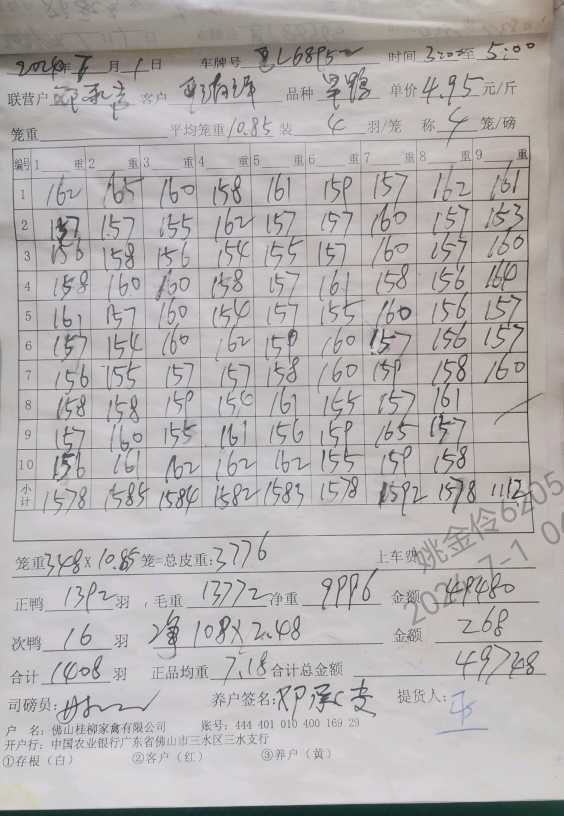 2024年 月 1日 车牌号 L6895 时间 3:00至 5:00
联营户 客户 品种 单价 4.95 元/斤
笼重 平均笼重 10.85 装 4 羽/笼 称 4 笼/磅
编号 1 重 2 重 3 重 4 重 5 重 6 重 7 重 8 重 9 重
1 162 165 160 158 161 159 157 162 161
2 157 157 155 162 157 157 160 157 153
3 156 158 156 154 155 157 160 157 160
4 158 160 160 158 157 161 158 156 164
5 161 157 160 154 157 155 160 156 157
6 157 154 160 162 159 160 157 156 157
7 156 155 157 157 158 160 159 158 160
8 158 158 159 154 161 155 157 161
9 157 160 155 161 156 159 165 157
10 156 161 162 162 162 155 159 158
小计 1578 1585 1584 1582 1583 1578 1592 1578 1112
笼重 348 X 10.85 笼=总皮重: 3776 上车费
正鸭 1392 羽 , 毛重 13772 净重 9996 金额 49480
次鸭 16 羽 净 108 X 2.48 金额 268
合计 1408 羽 正品均重 7.18 合计总金额 49748
司磅员: 养户签名: 提货人:
户 名: 佛山桂柳家禽有限公司 账号: 444 401 010 400 169 29
开户行: 中国农业银行广东省佛山市三水区三水支行
①存根（白） ②客户（红） ③养户（黄）
姚金伶6205